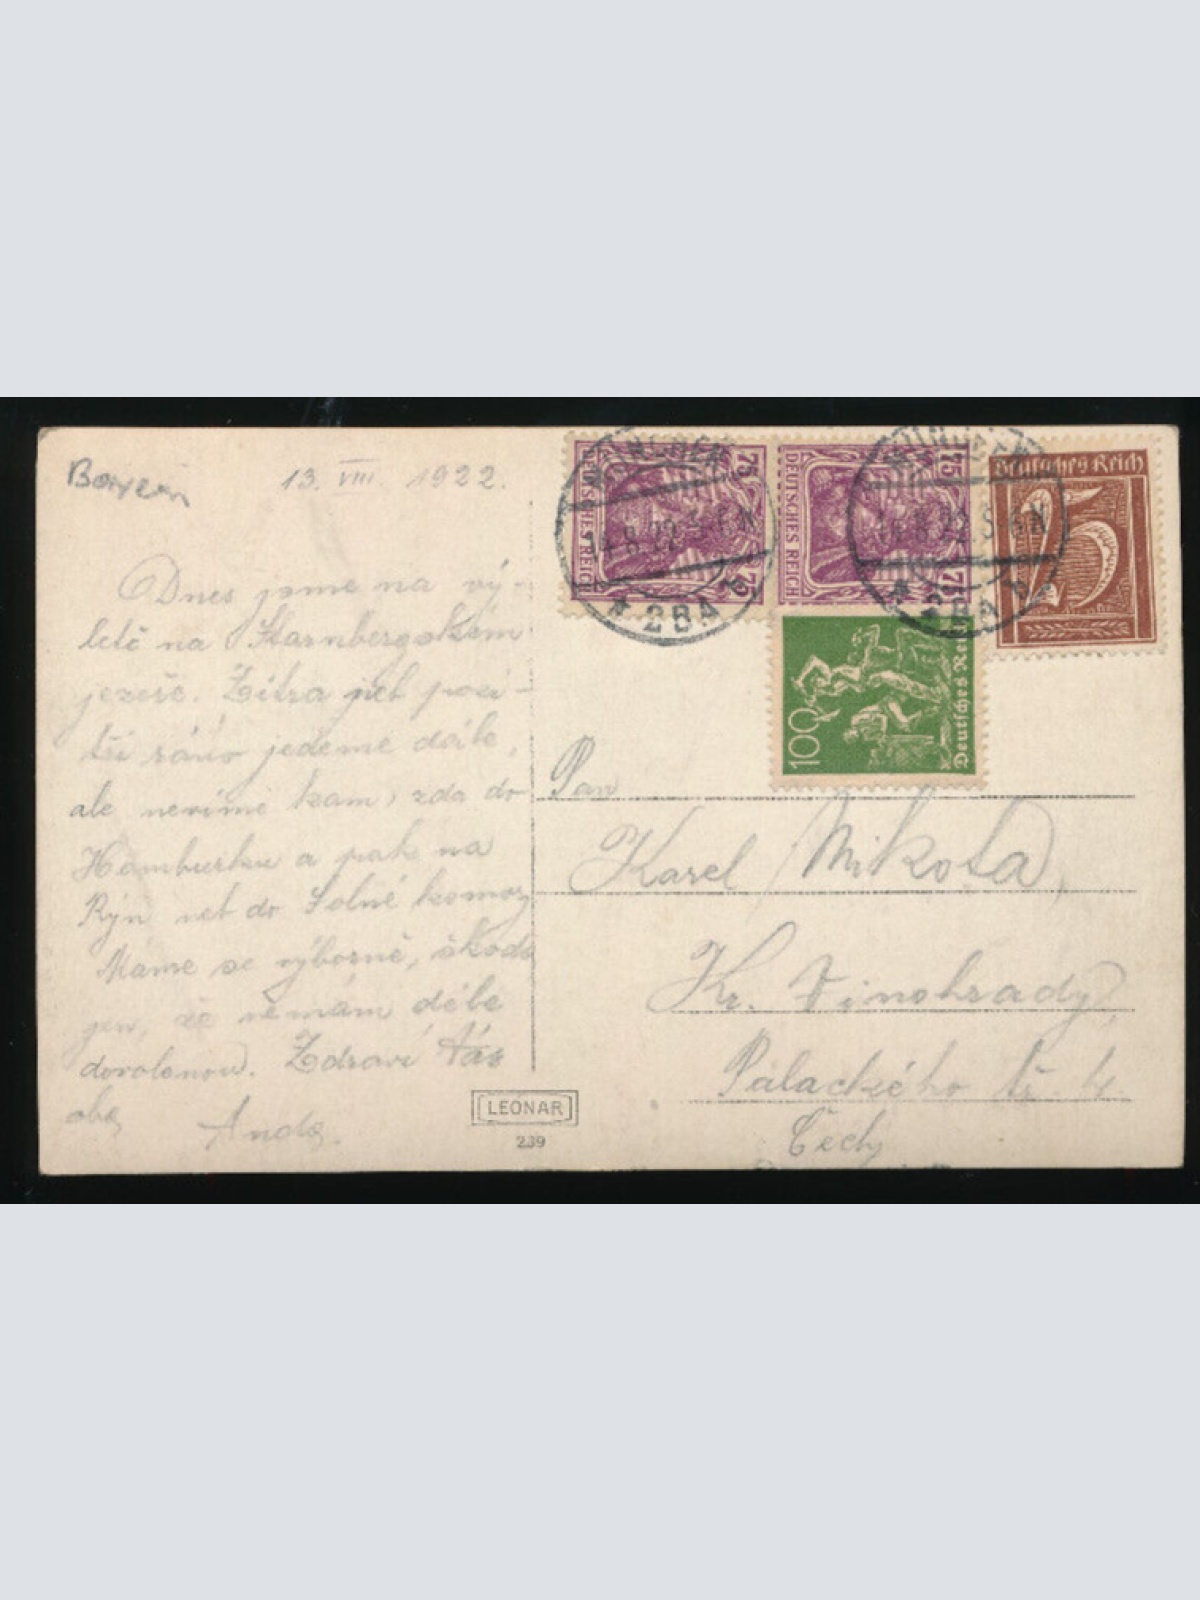 Bayern
13. VIII. 1922.
Dnes jsme na vý-
letě na Starnbergském
jezeře. Zítra neb pozí-
tří ráno jedeme dále,
ale nevíme kam, zda do
Hamburku a pak na
Rýn neb do Solné komory
Máme se výborně, škoda
jen, že nemám déle
dovolenou. Zdraví Vás
oba
Anda.
LEONAR
239
MÜNCHEN
14.8.22 5-6 N
* 2BA
MÜNCHEN
14.8.22 5-6 N
* 2BA
75 75
DEUTSCHES REICH
75 75
DEUTSCHES REICH
Deutsches Reich
25
100
Deutsches Reich
Pan
Karel Mikota,
Kr. Vinohrady
Palackého tř. 4.
Čechy